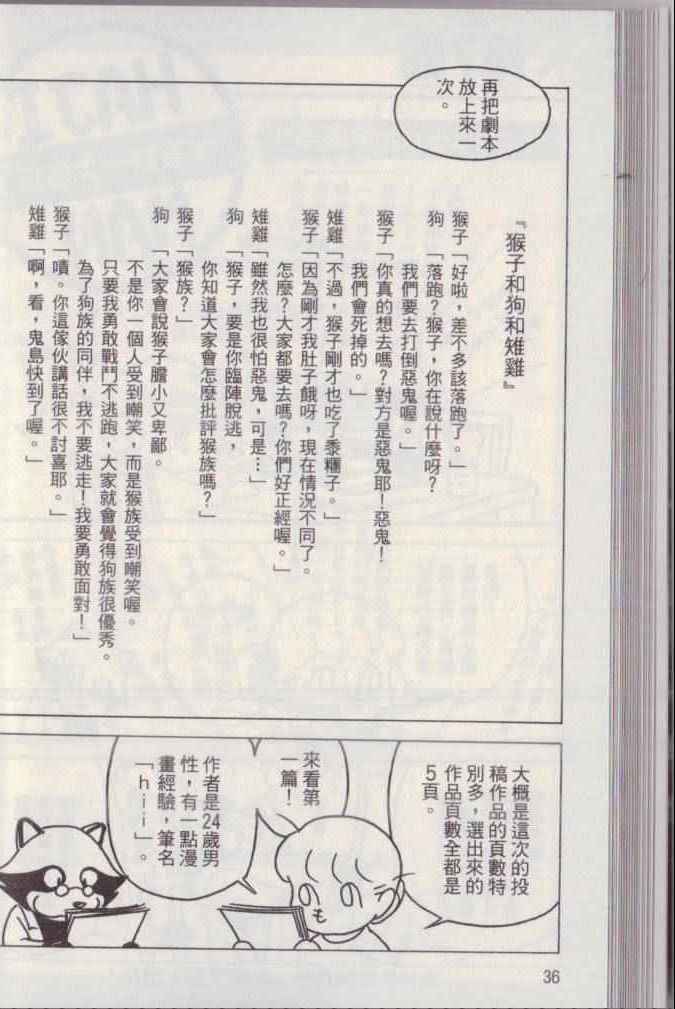 再把劇本
放上來一
次。
『猴子和狗和雉雞』
猴子「好啦，差不多該落跑了。」
狗　「落跑？猴子，你在說什麼呀？
我們要去打倒惡鬼喔。」
猴子「你真的想去嗎？對方是惡鬼耶！惡鬼！
我們會死掉的。」
雉雞「不過，猴子剛才也吃了黍糰子。」
猴子「因為剛才我肚子餓呀，現在情況不同了。
怎麼？大家都要去嗎？你們好正經喔。」
雉雞「雖然我也很怕惡鬼，可是…」
狗　「猴子，要是你臨陣脫逃，
你知道大家會怎麼批評猴族嗎？」
猴子「猴族？」
狗　「大家會說猴子膽小又卑鄙。
不是你一個人受到嘲笑，而是猴族受到嘲笑喔。
只要我勇敢戰鬥不逃跑，大家就會覺得狗族很優秀。
為了狗族的同伴，我不要逃走！我要勇敢面對！」
猴子「嘖。你這傢伙講話很不討喜耶。」
雉雞「啊，看，鬼島快到了喔。」
大概是這次的投
稿作品的頁數特
別多，選出來的
作品頁數全都是
5頁。
來看第
一篇！
作者是24歲男
性，有一點漫
畫經驗，筆名
「hii」。
36